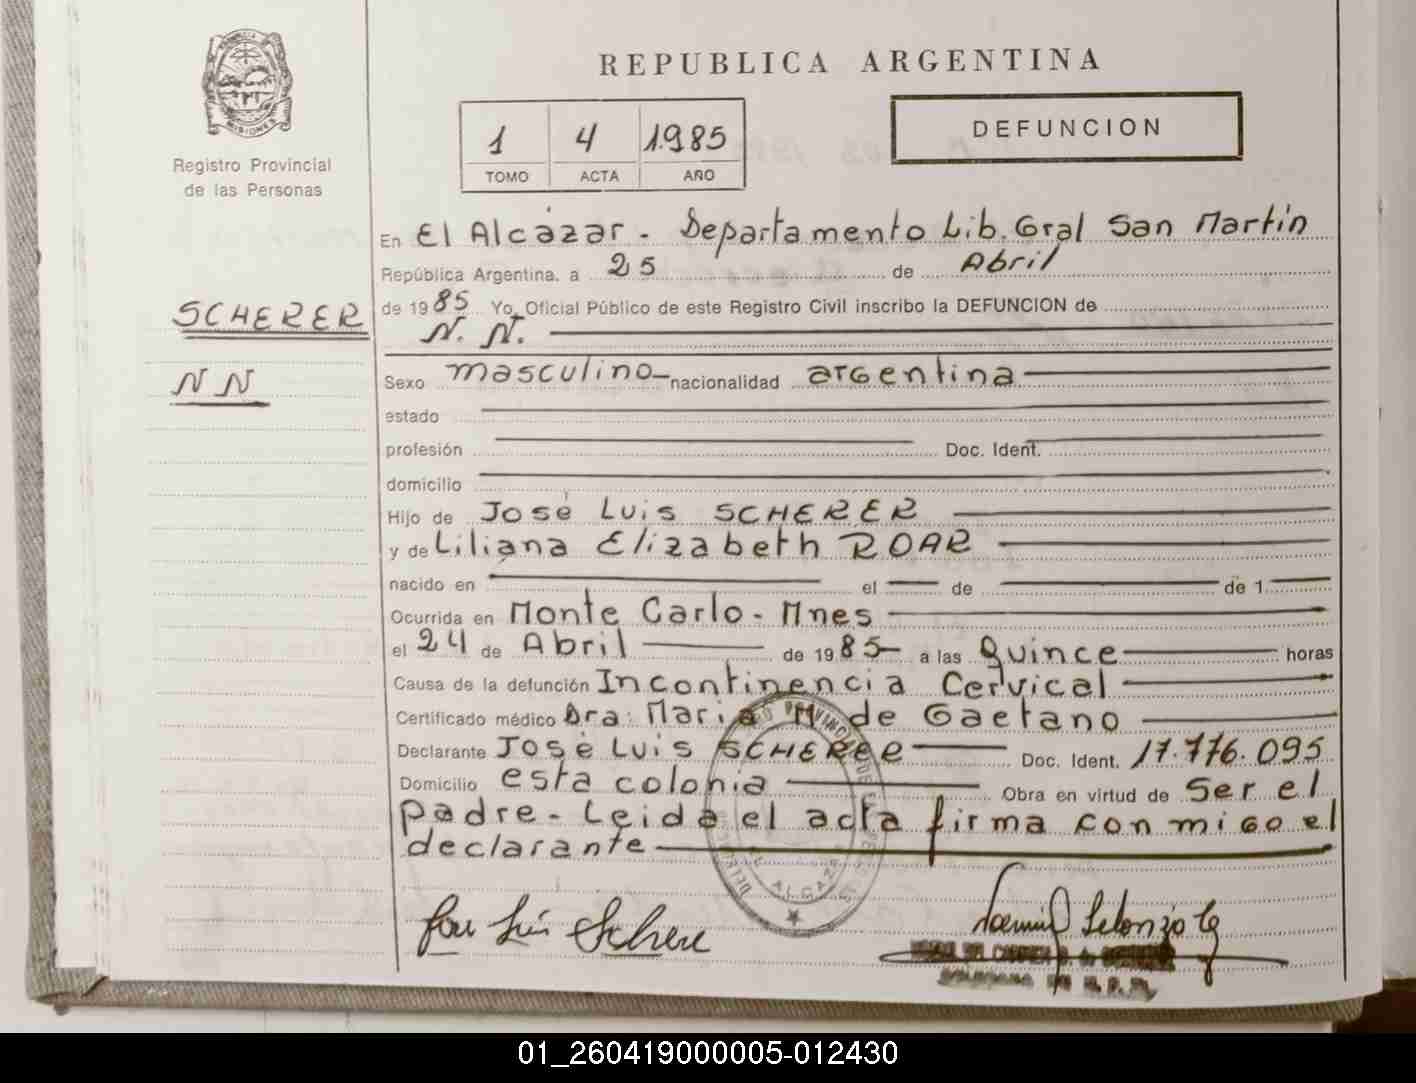 REPUBLICA ARGENTINA
MISIONES
Registro Provincial
de las Personas
1 4 1.985
TOMO ACTA AÑO
DEFUNCION
SCHERER
N N
En El Alcázar - Departamento Lib. Gral San Martín
República Argentina, a 25 de Abril
de 1985 Yo, Oficial Público de este Registro Civil inscribo la DEFUNCION de
N. N.
Sexo masculino nacionalidad argentina
estado
profesión Doc. Ident.
domicilio
Hijo de José Luis SCHERER
y de Liliana Elizabeth ROAR
nacido en el de de 1
Ocurrida en Monte Carlo - Mnes
el 24 de Abril de 1985 a las Quince horas
Causa de la defunción Incontinencia Cervical
Certificado médico Dra: Maria M de Gaetano
Declarante José Luis SCHERER Doc. Ident. 17.776.095
Domicilio esta colonia Obra en virtud de Ser el
padre - Leida el acta firma con migo el
declarante
ALCAZAR
José Luis Scherer
01_260419000005-012430